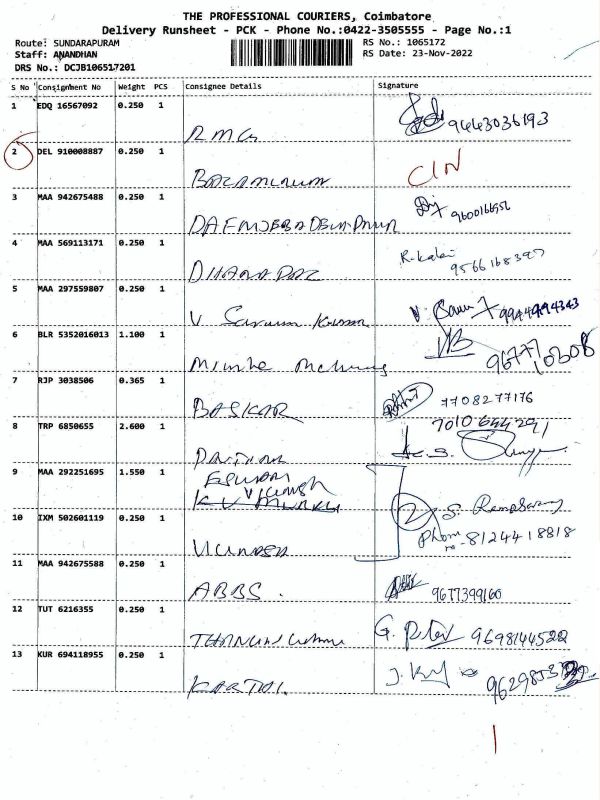 THE PROFESSIONAL COURIERS, Coimbatore
Delivery Runsheet - PCK - Phone No.:0422-3505555 - Page No.:1
Route: SUNDARAPURAM
RS No.: 1065172
Staff: ANANDHAN
RS Date: 23-Nov-2022
DRS No.: DCJB106517201
S No Consignment No Weight PCS Consignee Details Signature
1 EDQ 16567092 0.250 1
RMG 9443036193
2 DEL 910008887 0.250 1
CIN
3 MAA 942675488 0.250 1
9600166956
4 MAA 569113171 0.250 1
DHANARAJ R. Kalai
5 MAA 297559807 0.250 1
V Saravana Kumar 9944994343
6 BLR 5352016013 1.100 1
96777 10808
7 RJP 3038506 0.365 1
BASKAR 7708277176
8 TRP 6850655 2.600 1
7010644291
9 MAA 292251695 1.550 1
10 IXM 502601119 0.250 1
2 S. Ramasamy
Phone no - 8124418818
11 MAA 942675588 0.250 1
ABBS. 9677399160
12 TUT 6216355 0.250 1
9698144522
13 KUR 694118955 0.250 1
KARTHI.